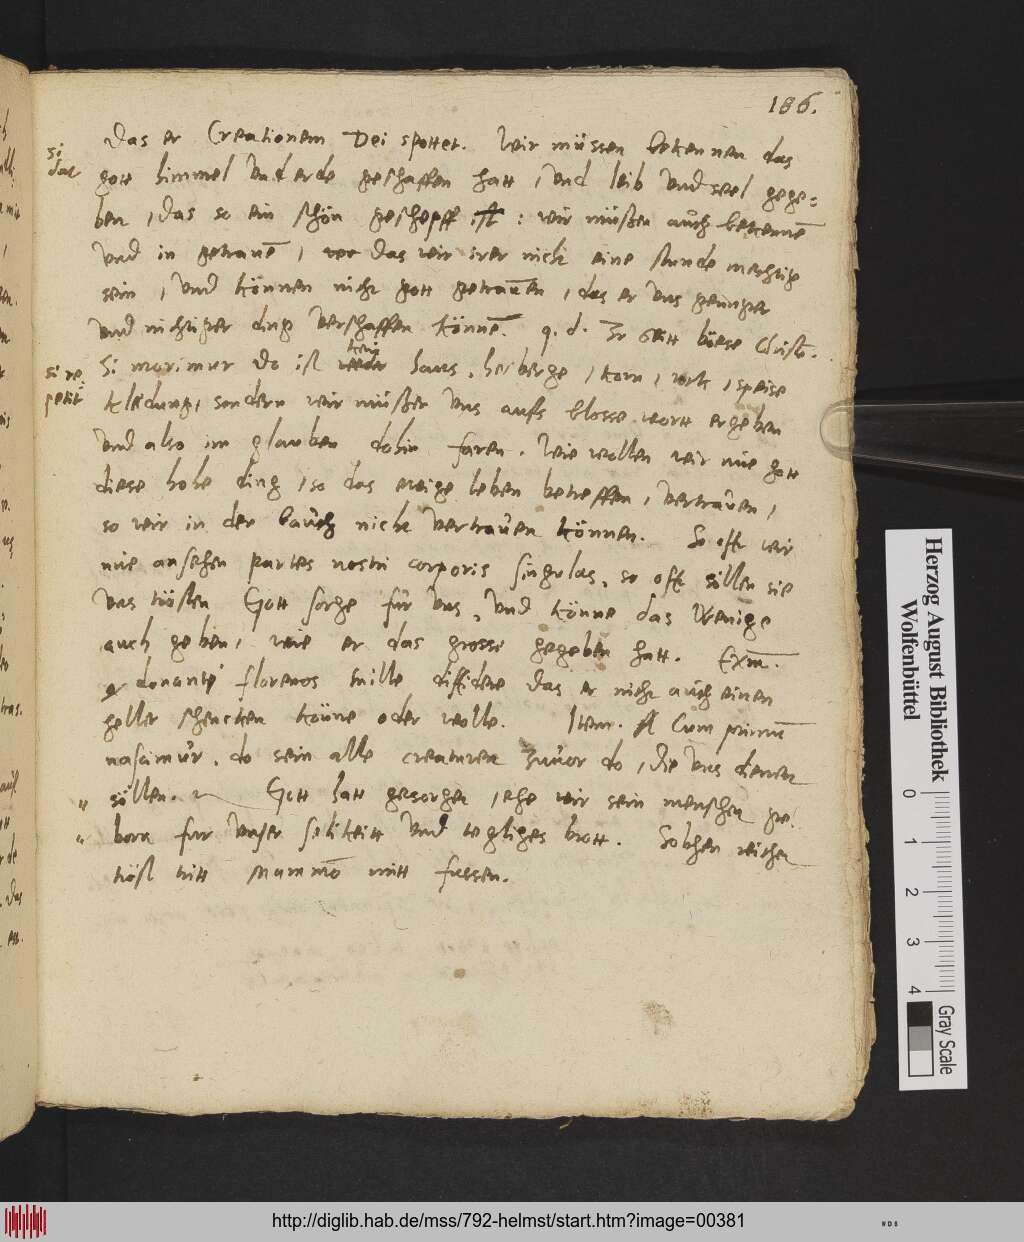 186.
Das er Creationem Dei spottet. Wir müssen bekennen das
si
dat
gott himmel Und erde geschaffen hatt, Und leib Und seel gege=
ben, Das so ein schön geschepff ist: wir müssen auch bekennē
Und in getrauē, das wir irer nicht eine stunde mechtig
sein, Und können nicht gott getrauen, das er Uns geringer
Und nichtiger ding verschaffen könnē. q. d. Ir böese Christ.
si re
petit
Si morimur Do ist kein haus, herberge, korn, rock, speise
kledung, sondern wir müssen Uns aufs blosse wortt ergeben
Und also im glauben dohin faren. Wie wollen wir nue gott
diese hohe ding, so das ewige leben betreffen, vertrauen,
so wir in der bauch nicht vertrauen können. So offt wir
nue ansehen partes nostri corporis singulas, so offt söllen sie
Uns trösten Gott sorge für Uns, Und könne das Wenige
auch geben, wie er das grosse gegeben hatt. Exm.
donanti florenos mille diffidere das er nicht auch einen
heller schencken könne oder wolle. Item. Cum primū
nascimur, do sein alle creaturen zuuor do, die Uns dienen
söllen. Gott hatt gesorget, ehe wir sein menschen ge-
born fur Unser selikeitt Und tegliges brott. Solchen reichen
tröst tritt Mammō mitt fussen.
Herzog August Bibliothek
Wolfenbüttel
0 1 2 3 4
Gray Scale
http://diglib.hab.de/mss/792-helmst/start.htm?image=00381